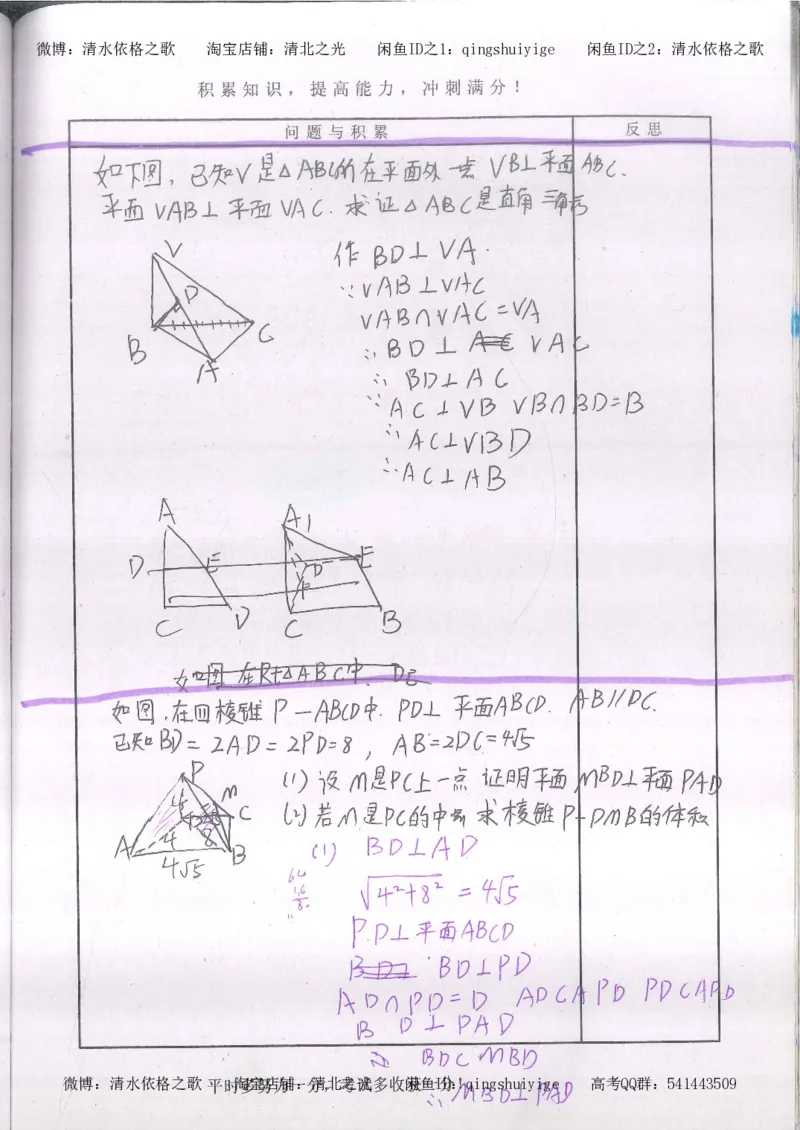 微博：清水依格之歌 淘宝店铺：清北之光 闲鱼ID之1：qingshuiyige 闲鱼ID之2：清水依格之歌
积累知识，提高能力，冲刺满分！
问题与积累 反思
如下图，已知V是△ABC所在平面外一点 VB⊥平面ABC.
平面VAB⊥平面VAC. 求证△ABC是直角三角形
V
D
B
C
A
作BD⊥VA.
∵VAB⊥VAC
VAB∩VAC=VA
∴BD⊥ VAC
∴BD⊥AC
∵AC⊥VB VB∩BD=B
∴AC⊥VBD
∴AC⊥AB
A
D E
C D
A1
E
D
F
C B
如图 在Rt△ABC中. DE
如图,在四棱锥P-ABCD中. PD⊥平面ABCD. AB//DC.
已知BD=2AD=2PD=8, AB=2DC=4√5
(1) 设M是PC上一点 证明平面MBD⊥平面PAD
(2) 若M是PC的中点 求棱锥P-DMB的体积
P
M
4
C
A 4 8 B
4√5
(1) BD⊥AD
64
16
80
√4²+8² =4√5
PD⊥平面ABCD
BD⊥PD
AD∩PD=D AD⊂APD PD⊂APD
BD⊥PAD
∵ BD⊂MBD
∴MBD⊥PAD
微博：清水依格之歌 淘宝店铺：清北之光 闲鱼ID之1：qingshuiyige 高考QQ群：541443509
平时多努力一分，考试多收获一分！